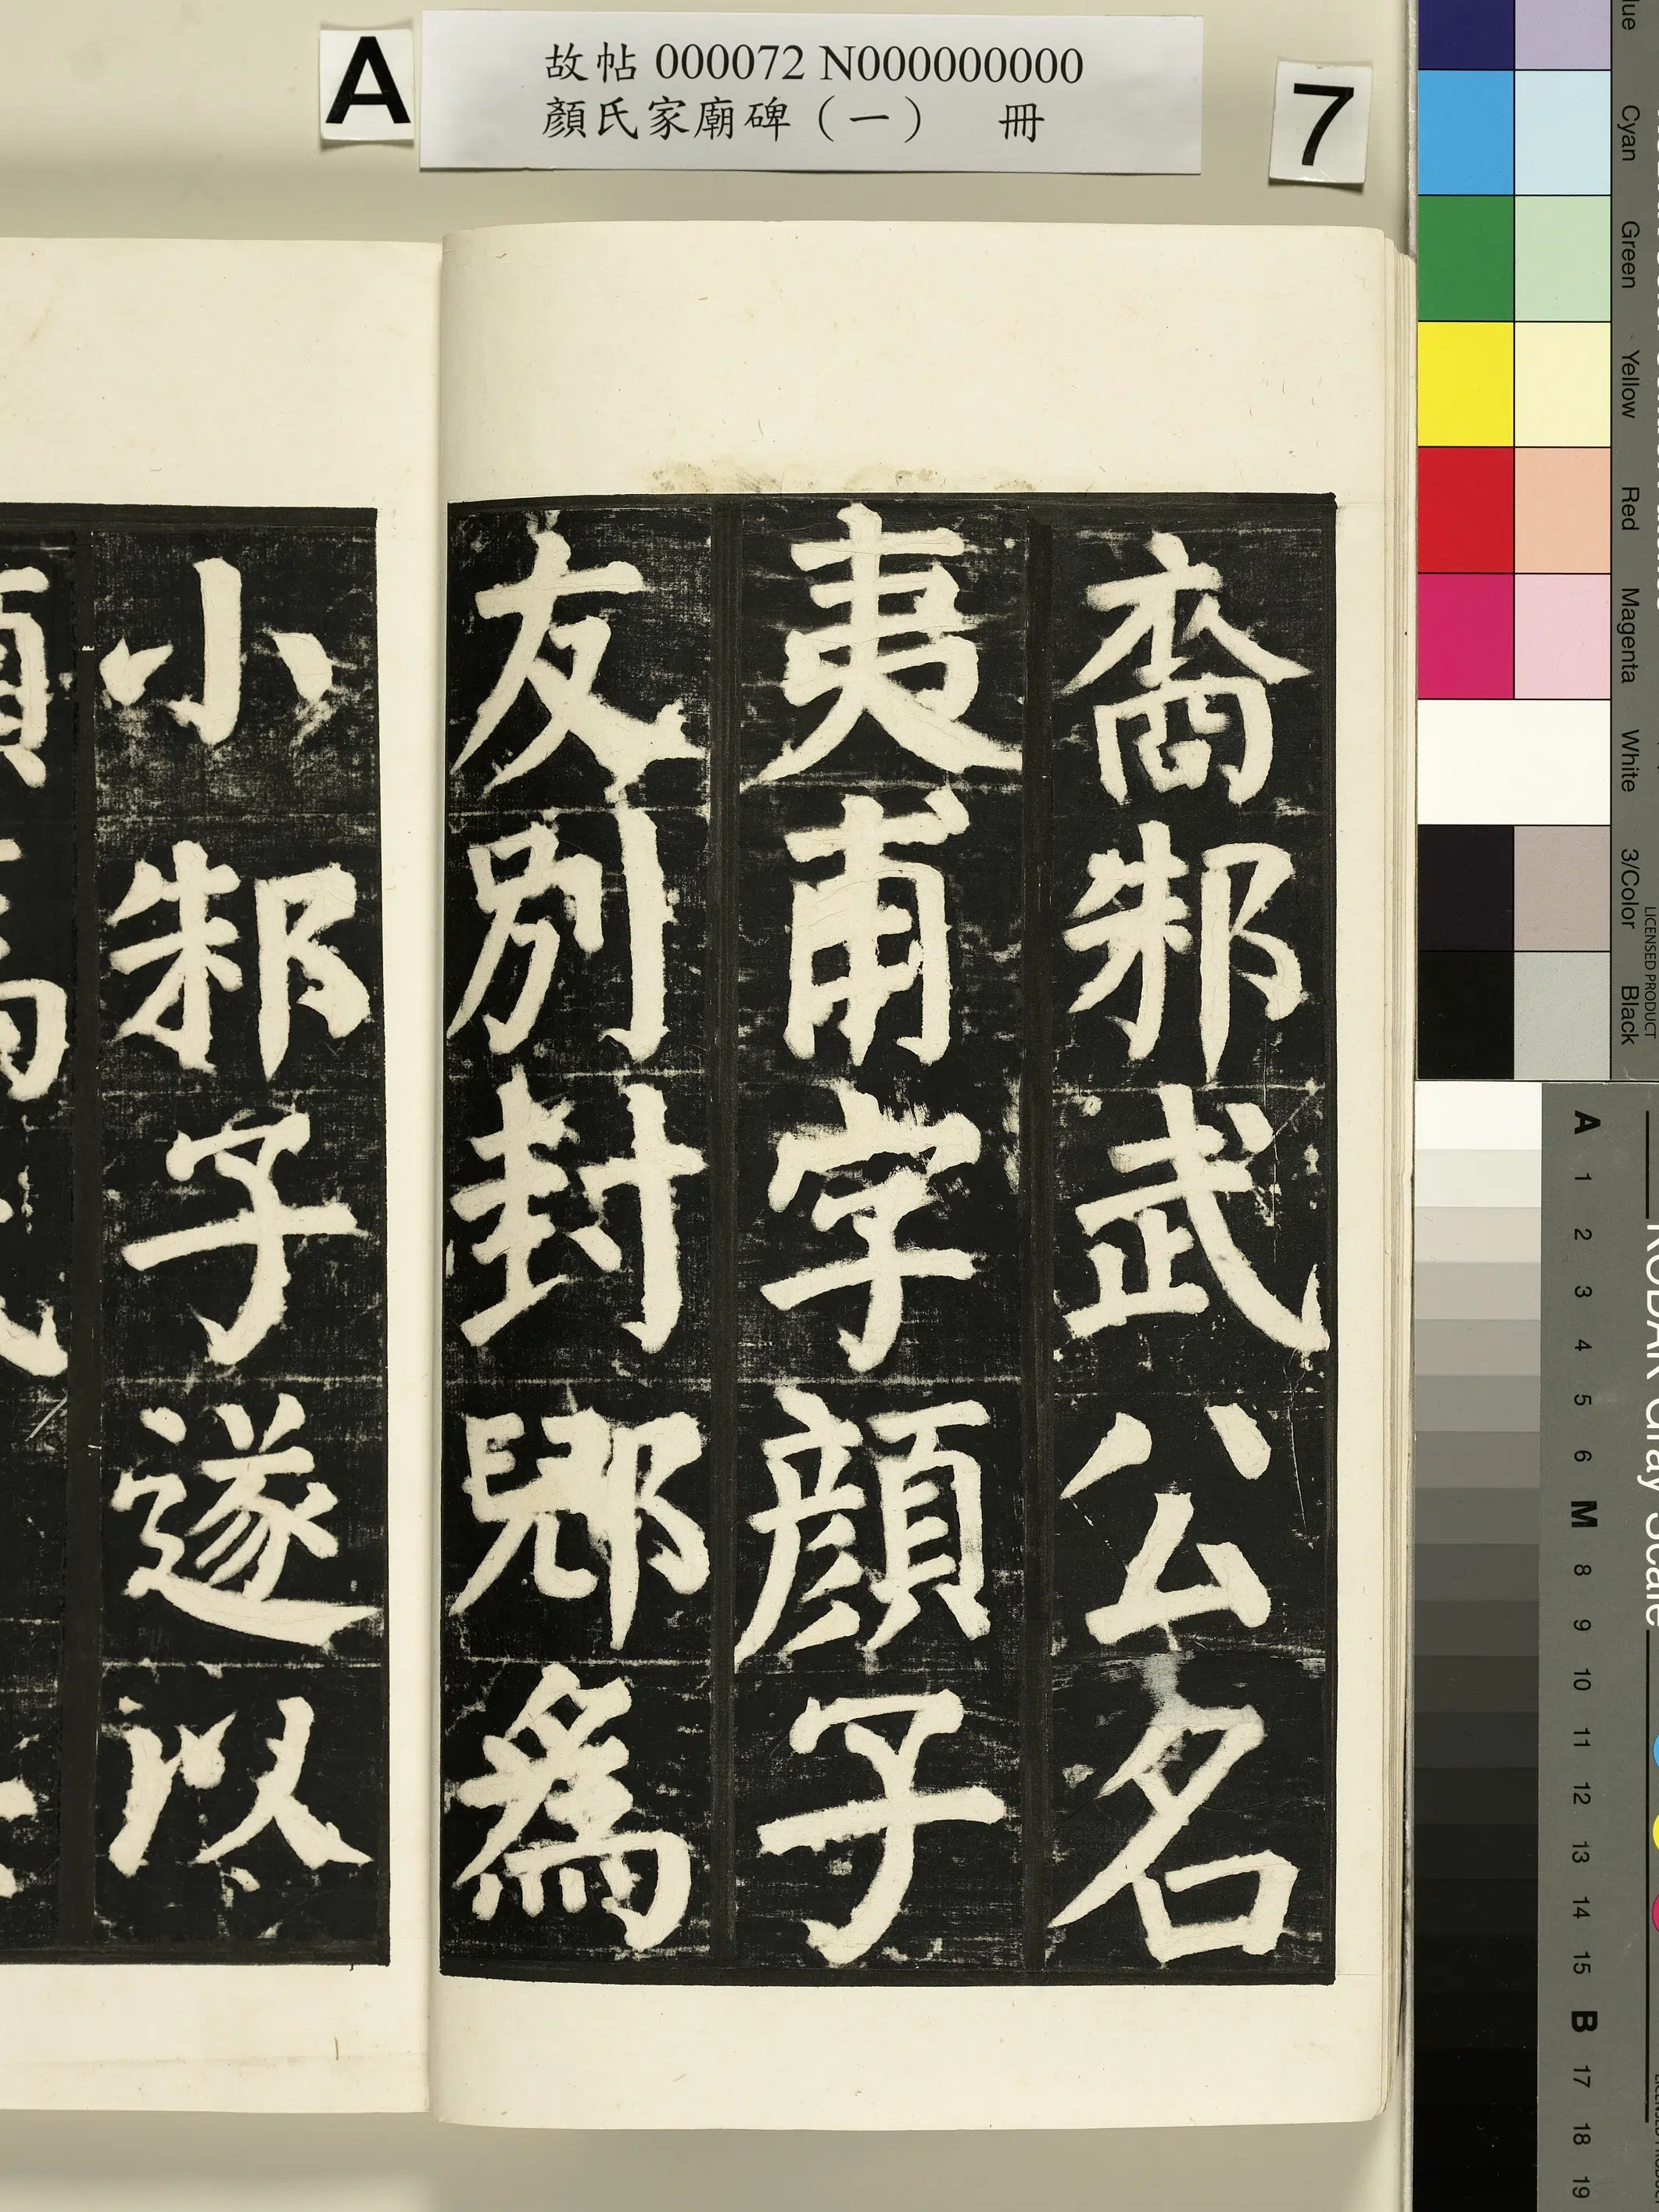 A
故帖 000072 N000000000
顏氏家廟碑（一） 冊
7
裔邾武公名
夷甫字顏子
友別封郳為
小邾子遂以
Cyan
Green
Yellow
Red
Magenta
White
3/Color
Black
LICENSED PRODUCT
KODAK Gray Scale
A 1 2 3 4 5 6 M 8 9 10 11 12 13 14 15 B 17 18 19